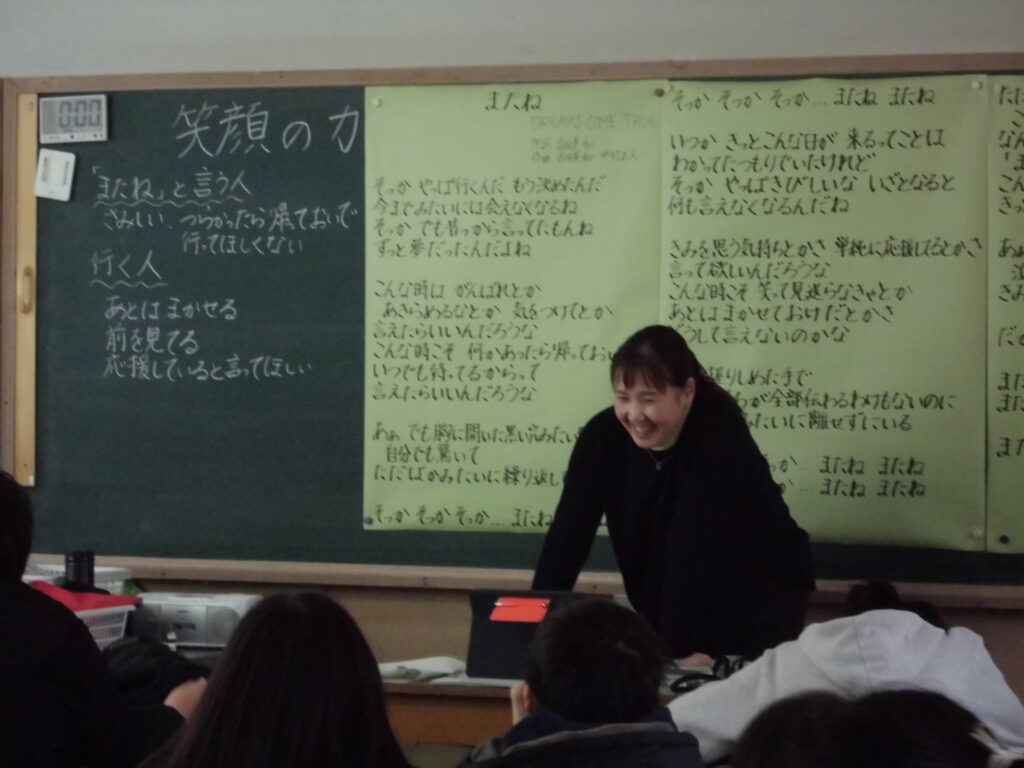 0:00
笑顔の力
「またね」と言う人
さみしい、つらかったら帰っておいで
行ってほしくない
行く人
あとはまかせる
前を見てる
応援していると言ってほしい
またね
DREAMS COME TRUE
そっか やっぱ行くんだ もう決めたんだ
今までみたいには会えなくなるね
そっか でも昔っから言ってたもんね
ずっと夢だったんだよね
こんな時は がんばれとか
あきらめるなとか 気をつけてとか
言えたらいいんだろうな
こんな時こそ 何かあったら帰っておい
いつでも待ってるからって
言えたらいいんだろうな
あぁ でも胸に開いた黒い穴みたい
自分でも驚いて
ただばかみたいに繰り返し
そっか そっか そっか… またね
そっか そっか そっか… またね またね
いつか きっとこんな日が 来るってことは
わかってたつもりでいたけれど
そっか やっぱさびしいな いざとなると
何も言えなくなるんだね
きみを思う気持ちとかさ 単純に応援してるとかさ
言って欲しいんだろうな
こんな時こそ 笑って見送らなきゃとか
あとはまかせておけだとかさ
どうして言えないのかな
握りしめた手で
が全部伝わるわけもないのに
みたいに離せずにいる
っか… またね またね
か… またね またね